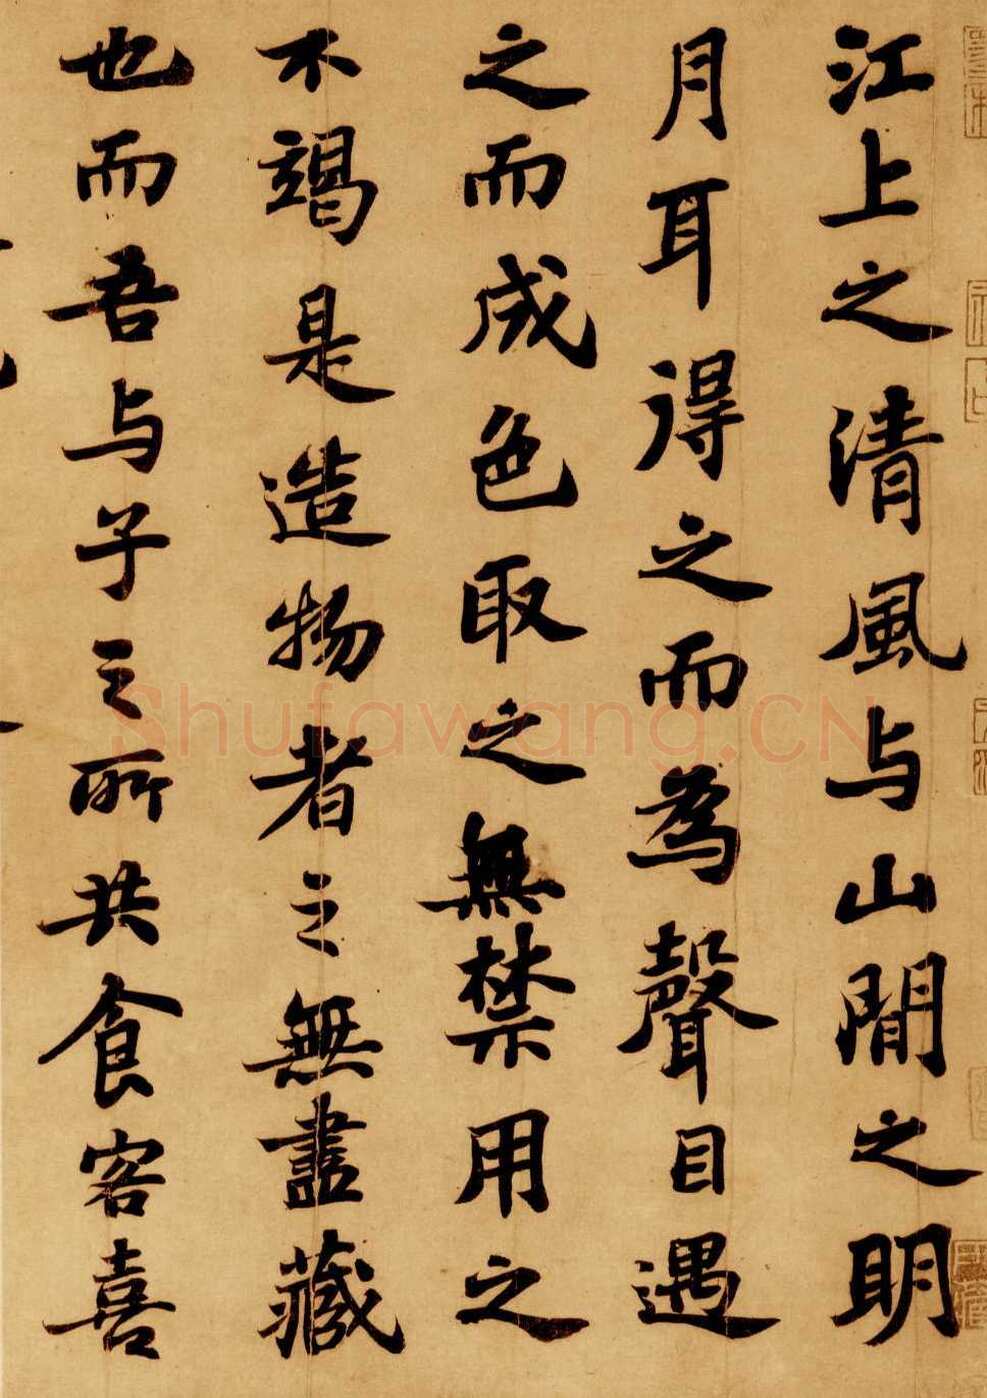 江上之清風与山間之明
月耳得之而為聲目遇
之而成色取之無禁用之
不竭是造物者之無盡藏
也而吾与子之所共食客喜
Shufawang.CN